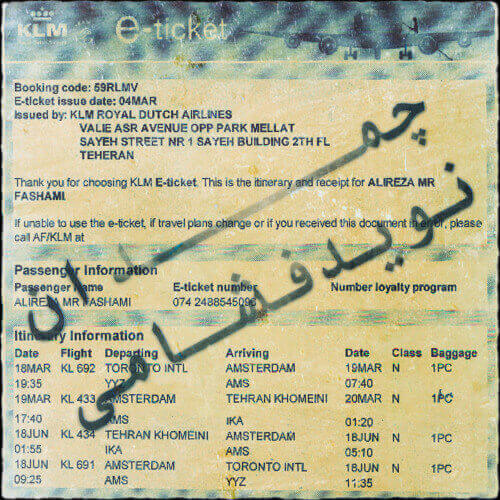 KLM
e-ticket
Booking code: 59RLMV
E-ticket issue date: 04MAR
Issued by: KLM ROYAL DUTCH AIRLINES
VALIE ASR AVENUE OPP PARK MELLAT
SAYEH STREET NR 1 SAYEH BUILDING 2TH FL
TEHERAN
Thank you for choosing KLM E-ticket. This is the itinerary and receipt for ALIREZA MR
FASHAMI.
If unable to use the e-ticket, if travel plans change or if you received this document in error, please
call AF/KLM at
چمدان
نوید فشامی
Passenger Information
Passenger Name E-ticket number Number loyalty program
ALIREZA MR FASHAMI 074 2488545093
Itinerary Information
Date Flight Departing Arriving Date Class Baggage
18MAR KL 692 TORONTO INTL AMSTERDAM 19MAR N 1PC
19:35 YYZ AMS 07:40
19MAR KL 433 AMSTERDAM TEHRAN KHOMEINI 20MAR N 1PC
17:40 AMS IKA 01:20
18JUN KL 434 TEHRAN KHOMEINI AMSTERDAM 18JUN N 1PC
01:55 IKA AMS 05:10
18JUN KL 691 AMSTERDAM TORONTO INTL 18JUN N 1PC
09:25 AMS YYZ 11:35